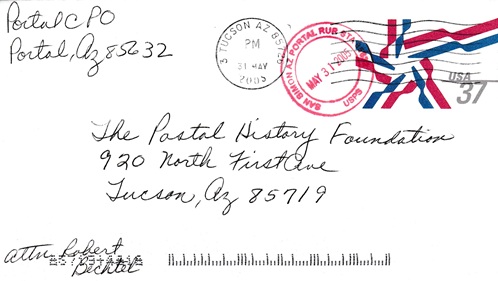 Portal CPO
Portal, Az 85632
TUCSON AZ 857
PM
31 MAY
2005
SAN SIMON AZ PORTAL RUR STA
MAY 31 2005
USPS
USA
37
The Postal History Foundation
920 North First Ave
Tucson, Az 85719
attn Robert
Bechtel